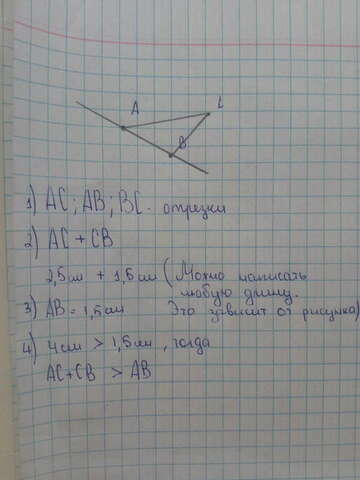 A
C
B
1) AC; AB; BC - отрезки
2) AC + CB
2,5см + 1,5см (Можно написать
любую длину.
3) AB = 1,5см Это зависит от рисунка)
4) 4см > 1,5см, тогда
AC+CB > AB